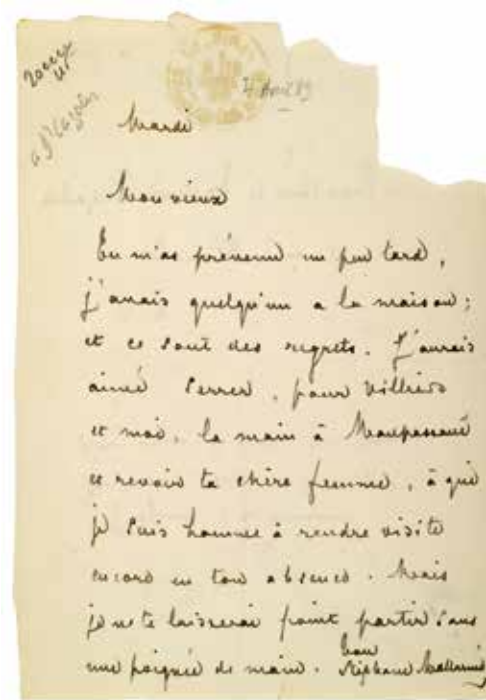 4 Avril 89
Mardi
Mon vieux
Tu m'as prévenu un peu tard,
j'avais quelqu'un a la maison;
et ce sont des regrets. J'aurais
aimé serrer, pour Villiers
et moi, la main à Maupassant
et revoir ta chère femme, à qui
je suis homme à rendre visite
encore en ton absence. Mais
je ne te laisserai point partir sans
une poignée de main. Ton
Stéphane Mallarmé